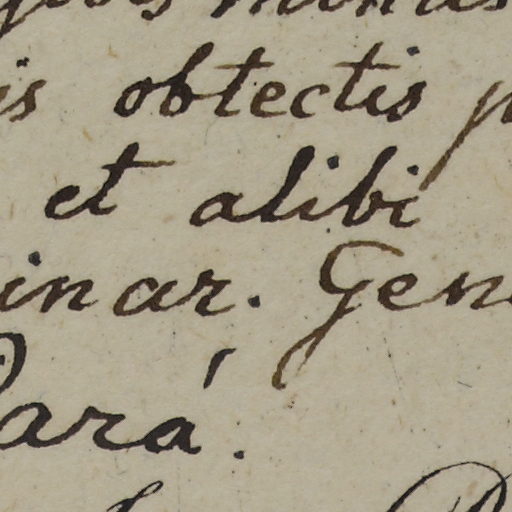 is obtectis p
et alibi
inar. Gen
Pará.